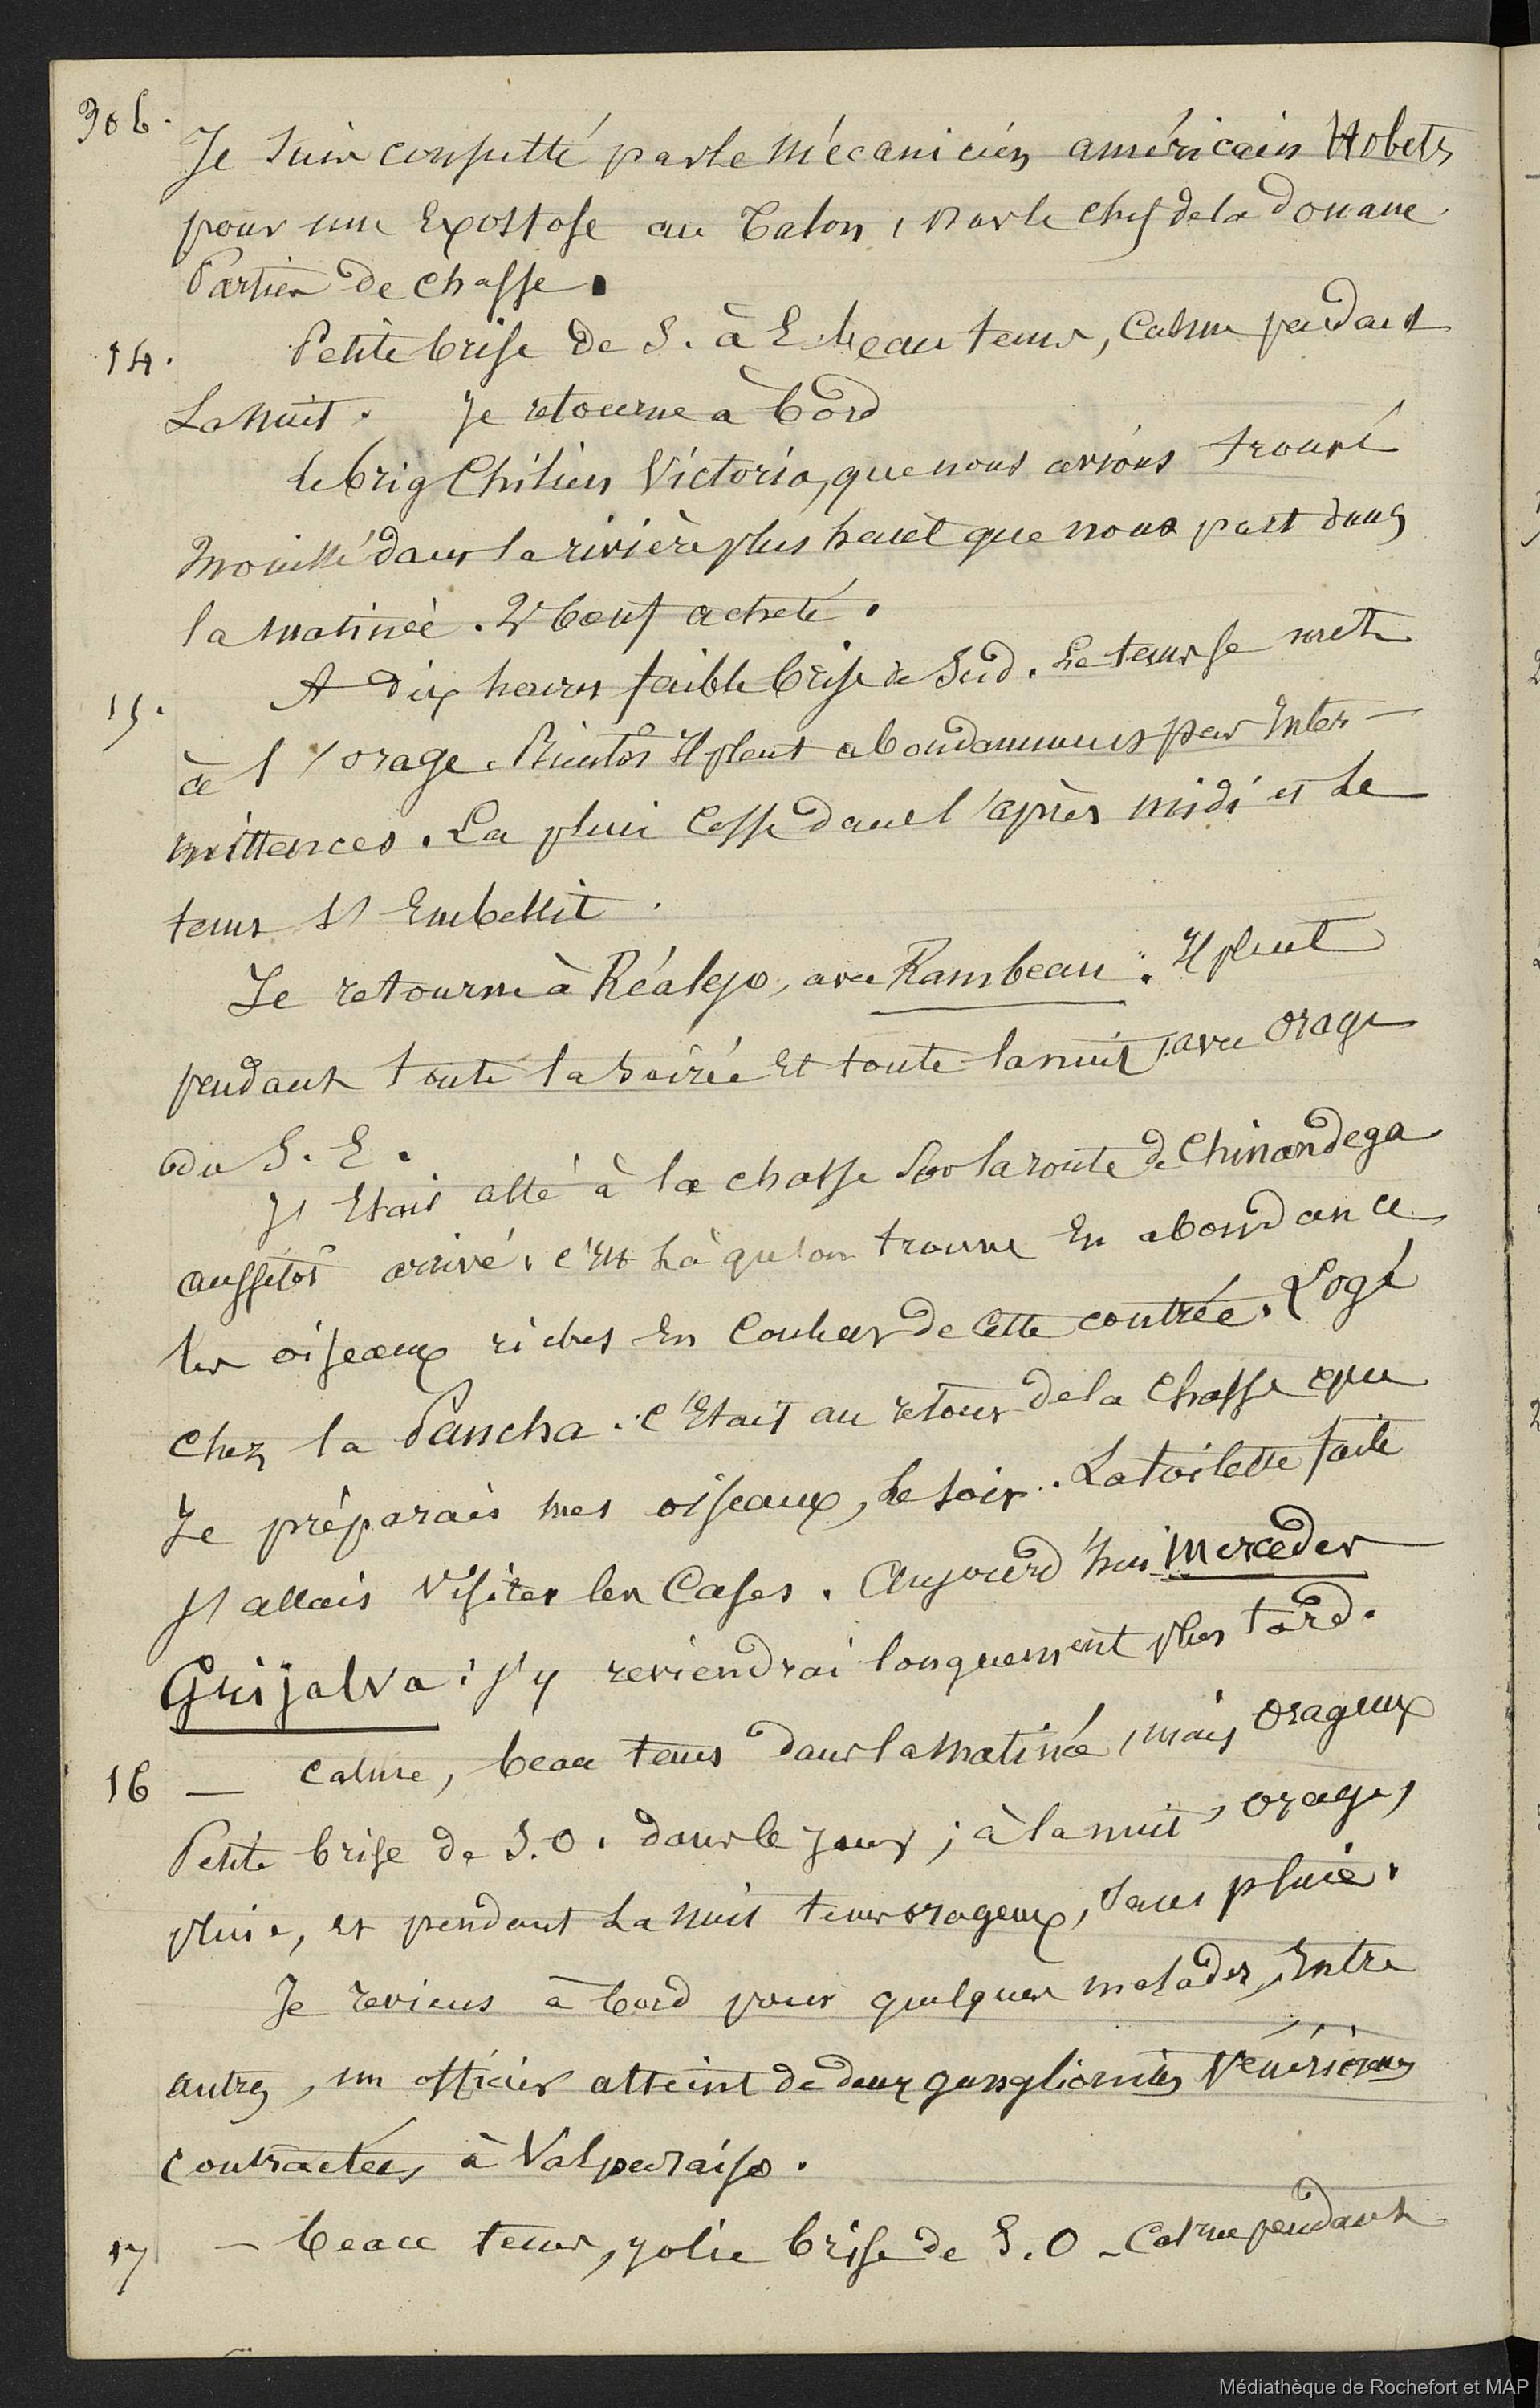 306.
Je suis consulté par le mécanicien américain Hobets
pour une Exostose au Talon, par le chef de la Douane
Parties de chasse.
14. Petite brise de S. à E. beau tems, Calme pendant
La nuit. Je retourne à bord
Le brig Chilien Victoria, que nous avions trouvé
mouillé dans la rivière plus haut que nous part dans
la matinée. 2d boeuf acheté.
15. A dix heures faible brise de Sud. Le tems se met
à l'orage. Bientôt Il pleut abondamment par Inter-
mittences. La pluie Cesse dans l'après midi et Le
tems s'Embellit.
Je retourne à Réalejo, avec Rambeau. Il pleut
pendant toute la soirée Et toute la nuit, avec orage
du S. E.
J'Etais allé à la chasse sur la route de Chinandega
aussitôt arrivé. c'Est Là qu'on trouve En abondance
les oiseaux riches En Couleur de Cette contrée. Logé
chez la Pancha. C'Etait au retour de la Chasse que
Je préparais mes oiseaux, Le soir. La toilette faite
J'allais Visiter les Cases. Aujourd'hui Mercedes
Grijalva: J'y reviendrai longuement plus tard.
16 — Calme, beau tems dans la matinée, mais orageux
Petite brise de S.O. dans le Jour; à la nuit, orages,
pluie, et pendant La nuit tems orageux, sans pluie.
Je reviens à bord pour quelques malades, Entre
autres, un officier atteint de deux ganglionites Vénériennes
contractées à Valparaiso.
17 — beau tems, jolie brise de S.O - Calme pendant
Médiathèque de Rochefort et MAP